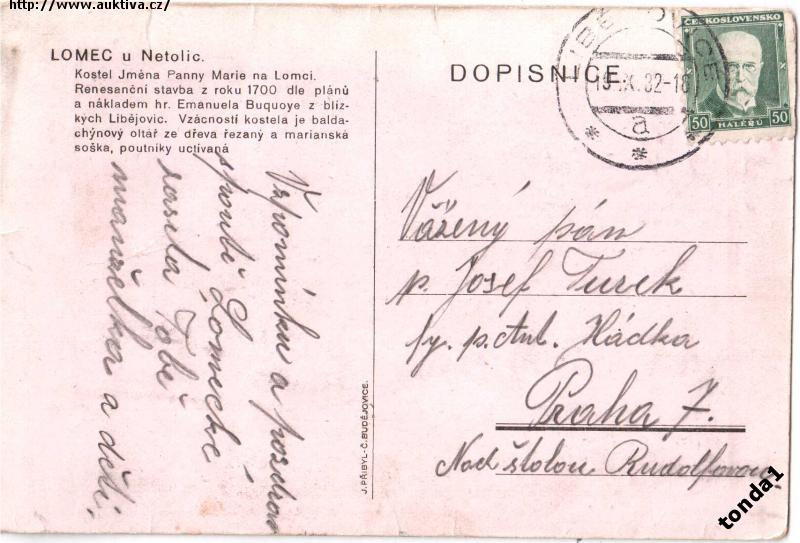 http://www.auktiva.cz/
LOMEC u Netolic.
Kostel Jména Panny Marie na Lomci.
Renesanční stavba z roku 1700 dle plánů
a nákladem hr. Emanuela Buquoye z blíz-
kých Libějovic. Vzácností kostela je balda-
chýnový oltář ze dřeva řezaný a marianská
soška, poutníky uctívaná
Vzpomínku a pozdrav
z pouti Lomecké
zasílá Tobě
manželka a děti.
J. PŘIBYL-Č. BUDĚJOVICE.
DOPISNICE
LIBĚJOVICE
19.IX.32-18
a
ČESKOSLOVENSKO
50 HALÉŘŮ 50
Vážený pán
p. Josef Turek
p. Ant. Hádka
Praha 7.
Nad štolou Rudolfovou
tonda1